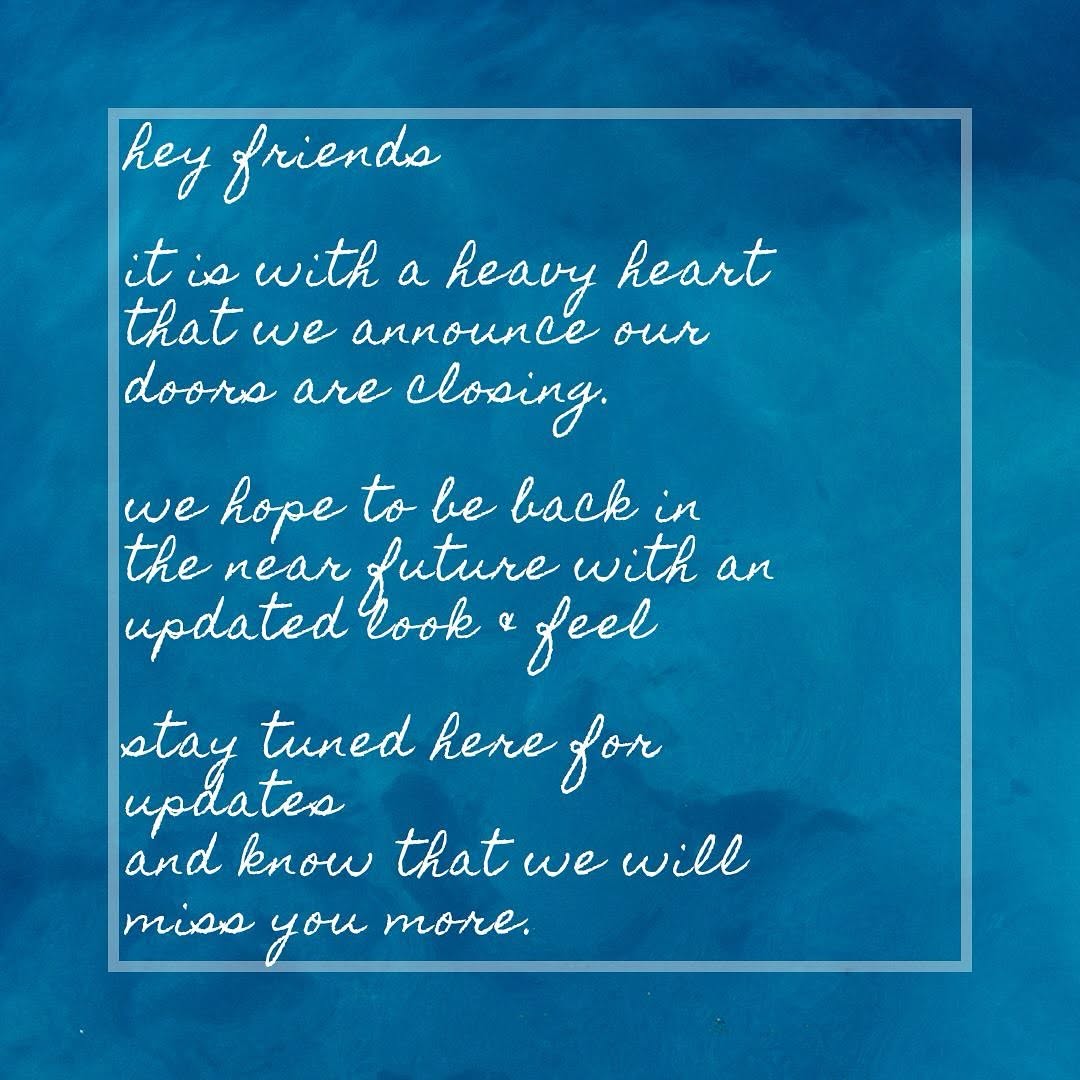 hey friends
it is with a heavy heart
that we announce our
doors are closing.
we hope to be back in
the near future with an
updated look & feel
stay tuned here for
updates
and know that we will
miss you more.